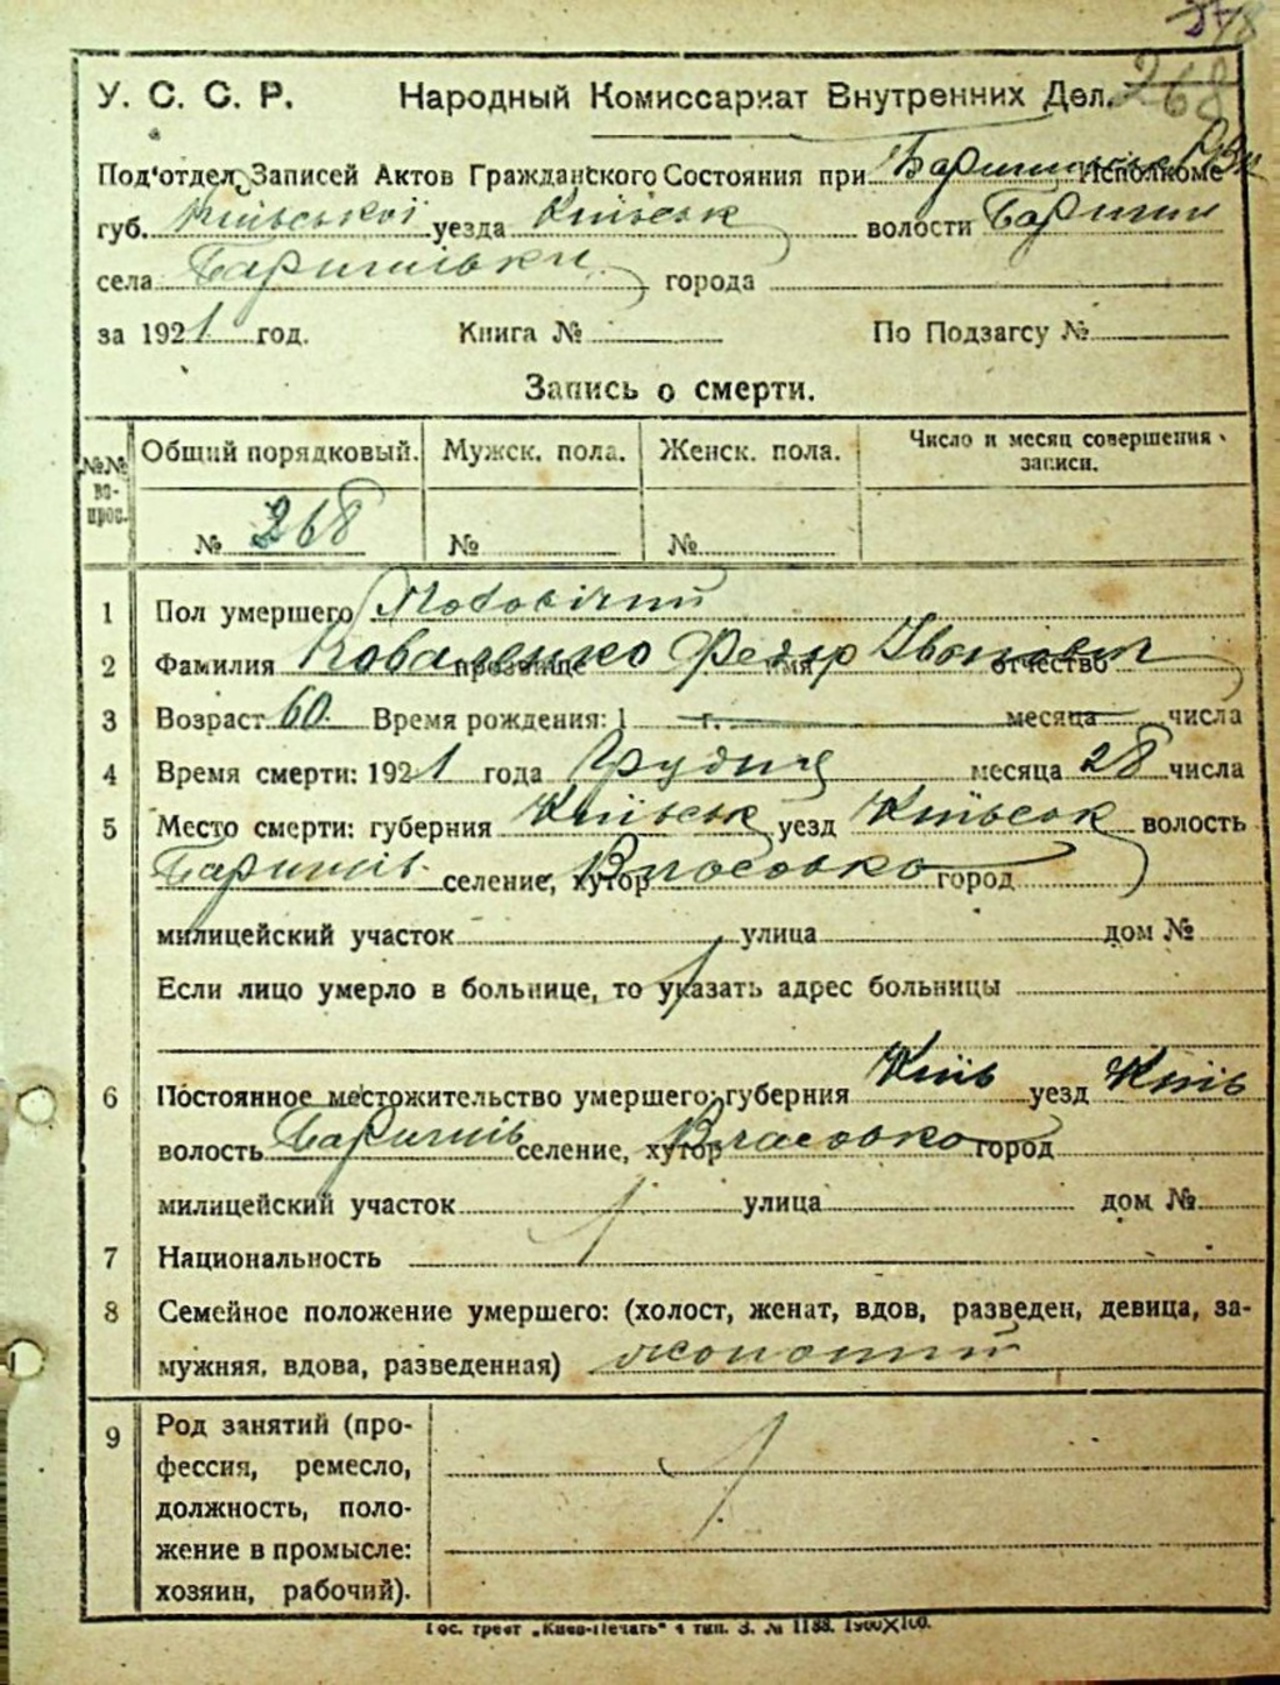 268
У. С. С. Р. Народный Комиссариат Внутренних Дел.
Под'отдел Записей Актов Гражданского Состояния при Исполкоме
губ. Київської уезда Київськ волости Баришів
села Баришівки города
за 1921 год. Книга № По Подзагсу №
Запись о смерти.
№№ вопрос. Общий порядковый. Мужск. пола. Женск. пола. Число и месяц совершения записи.
№ 268 № №
1 Пол умершего Чоловічий
2 Фамилия Коваленко прозвище Федір имя Іванович отчество
3 Возраст 60. Время рождения: 1 г. месяца числа
4 Время смерти: 1921 года Грудня месяца 28 числа
5 Место смерти: губерния Київськ уезд Київськ волость
Баришів. селение, хутор Власовка город
милицейский участок улица дом №
Если лицо умерло в больнице, то указать адрес больницы
6 Постоянное местожительство умершего: губерния Київ уезд Київ
волость Баришів селение, хутор Власовка город
милицейский участок улица дом №
7 Национальность
8 Семейное положение умершего: (холост, женат, вдов, разведен, девица, за-
мужняя, вдова, разведенная) жонатий
9 Род занятий (про-
фессия, ремесло,
должность, поло-
жение в промысле:
хозяин, рабочий).
Гос. трест „Киев-Печать“ 4 тип. З. № 1188. 1900X100.